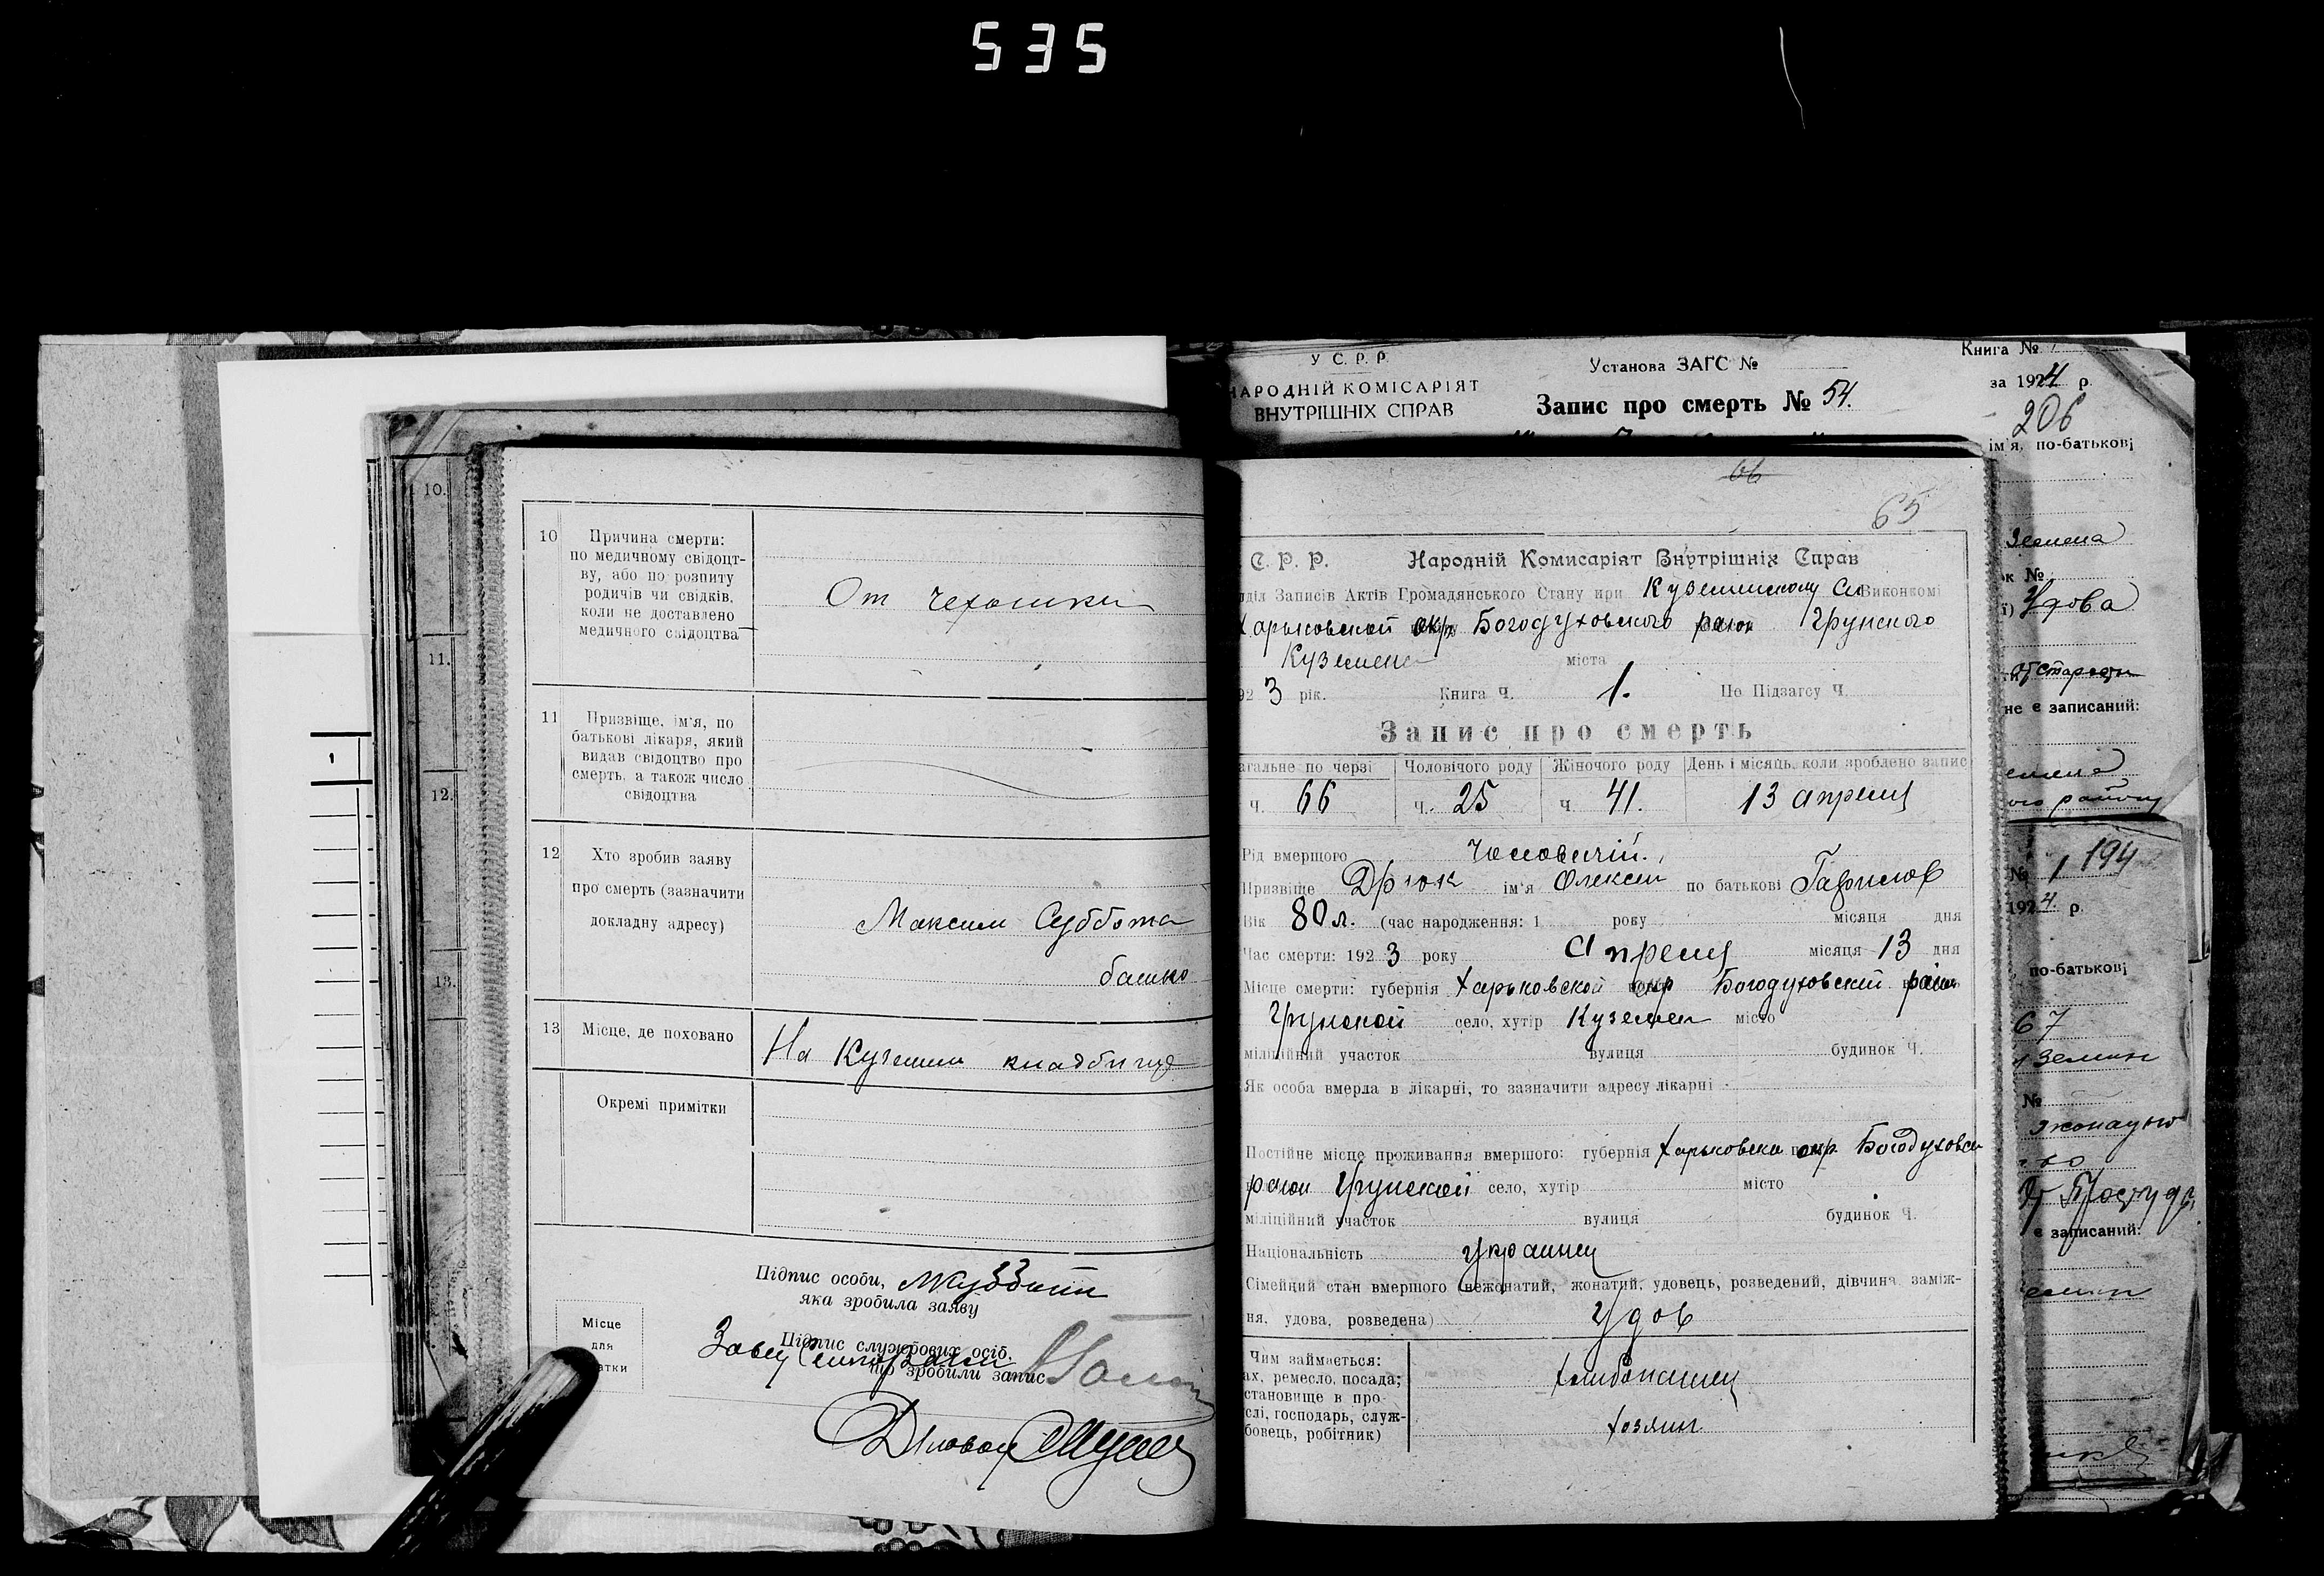 535
У С. Р. Р.
НАРОДНІЙ КОМІСАРІЯТ
ВНУТРІШНІХ СПРАВ
Установа ЗАГС №
Запис про смерть № 54.
Книга №
за 1924 р.
206
ім'я, по-батькові
10.
11.
12.
13.
1
10 Причина смерти:
по медичному свідоцт-
ву, або по розпиту
родичів чи свідків,
коли не доставлено
медичного свідоцтва
От чехотки
11 Призвіще, ім'я, по
батькові лікаря, який
видав свідоцтво про
смерть, а також число
свідоцтва
12 Хто зробив заяву
про смерть (зазначити
докладну адресу)
Максим Суббота
батько
13 Місце, де поховано
На Кузем кладбище
Окремі примітки
Підпис особи,
яка зробила заяву
Підпис службових осіб,
що зробили запис
Місце
для
атки
66
65
С. Р. Р. Народній Комисаріят Внутрішніх Справ
діл Записів Актів Громадянського Стану при Виконкомі
Харьковской окр Богодуховского район Грунского
міста
92 3 рік. Книга Ч. 1. По Підзагсу Ч.
Запис про смерть
агальне по черзі Чоловічого роду Жіночого роду День і місяць, коли зроблено запис
ч. 66 ч. 25 ч. 41. 13 апреля
Рід вмершого Чоловичій.
Призвіще Дрюк ім'я Олексей по батькові Гаврилов
Вік 80 л. (час народження: 1 року місяця дня
Час смерти: 192 3 року Апреля місяця 13 дня
Місце смерти: губернія Харьковской окр Богодуховский район
Грунской село, хутір Куземен місто
міліційний участок вулиця будинок Ч.
Як особа вмерла в лікарні, то зазначити адресу лікарні
Постійне місце проживання вмершого: губернія Харьковска окр. Богодуховск
район Грунской село, хутір місто
міліційний участок вулиця будинок Ч.
Національність Украинец
Сімейний стан вмершого (нежонатий, жонатий, удовець, розведений, дівчина, заміж-
ня, удова, розведена) Удов
Чим займається:
ах, ремесло, посада;
становище в про-
слі, господарь, служ-
бовець, робітник)
Хлибопашец
Хозяин
к №
Удова
не є записаний:
ого району
№ 1 194
1924. р.
по-батькові
67
№
є записаний: